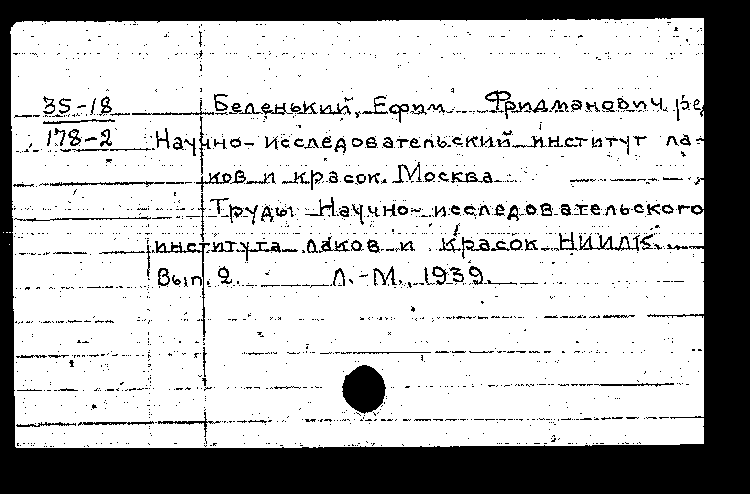 35-18 Беленький, Ефим Фридманович ре
178-2 Научно-исследовательский институт ла-
ков и красок. Москва
Труды Научно-исследовательского
института лаков и красок НИИЛК...
Вып. 2. Л.-М., 1939.